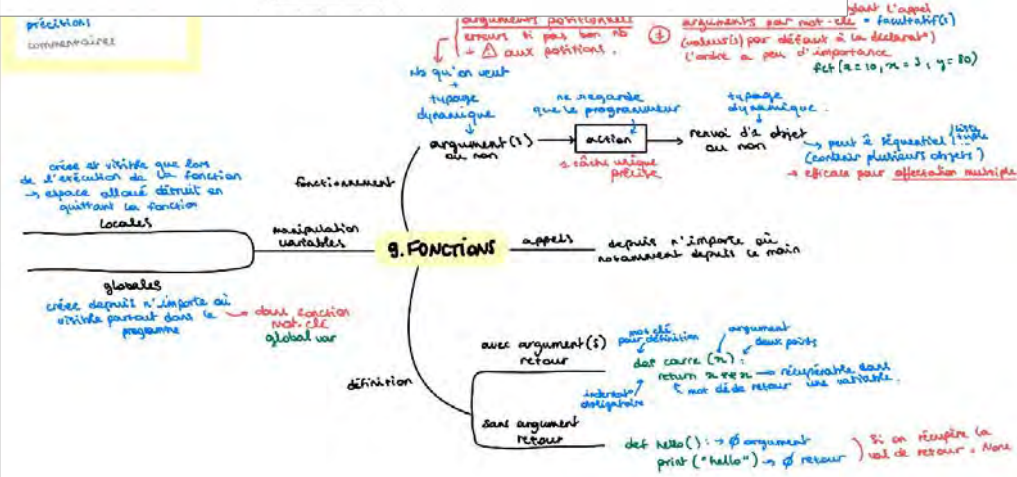 précisions
commentaires
arguments positionnels
erreurs si pas bon nb
+ ⚠ aux positions.
l'appel
arguments par mot-clé = facultatif(s)
(valeur(s) par défaut à la déclarat°)
l'ordre a peu d'importance
nb qu'on veut
+
typage
dynamique
argument(s)
ou non
ne regarde
que le programmeur
action
1 tâche unique
précise
typage
dynamique.
renvoi d'1 objet
ou non
→ peut ê séquentiel
liste
tuple
(contenir plusieurs objets)
→ efficace pour affectation multiple
fonctionnement
créée et visible que lors
de l'exécution de la fonction
→ espace alloué détruit en
quittant la fonction
locales
manipulation
variables
9. FONCTIONS
appels
depuis n'importe où
notamment depuis le main
globales
créée depuis n'importe où
visible partout dans le
programme
→ dans fonction
mot-clé
global var
définition
avec argument(s)
retour
mot clé
pour définition
argument
deux points
def carre (x) :
return x**x → récupérable dans
une variable.
mot clé de retour
indentat°
obligatoire
sans argument
retour
def hello() : → ∅ argument
print ("hello") → ∅ retour
Si on récupère la
val de retour = None